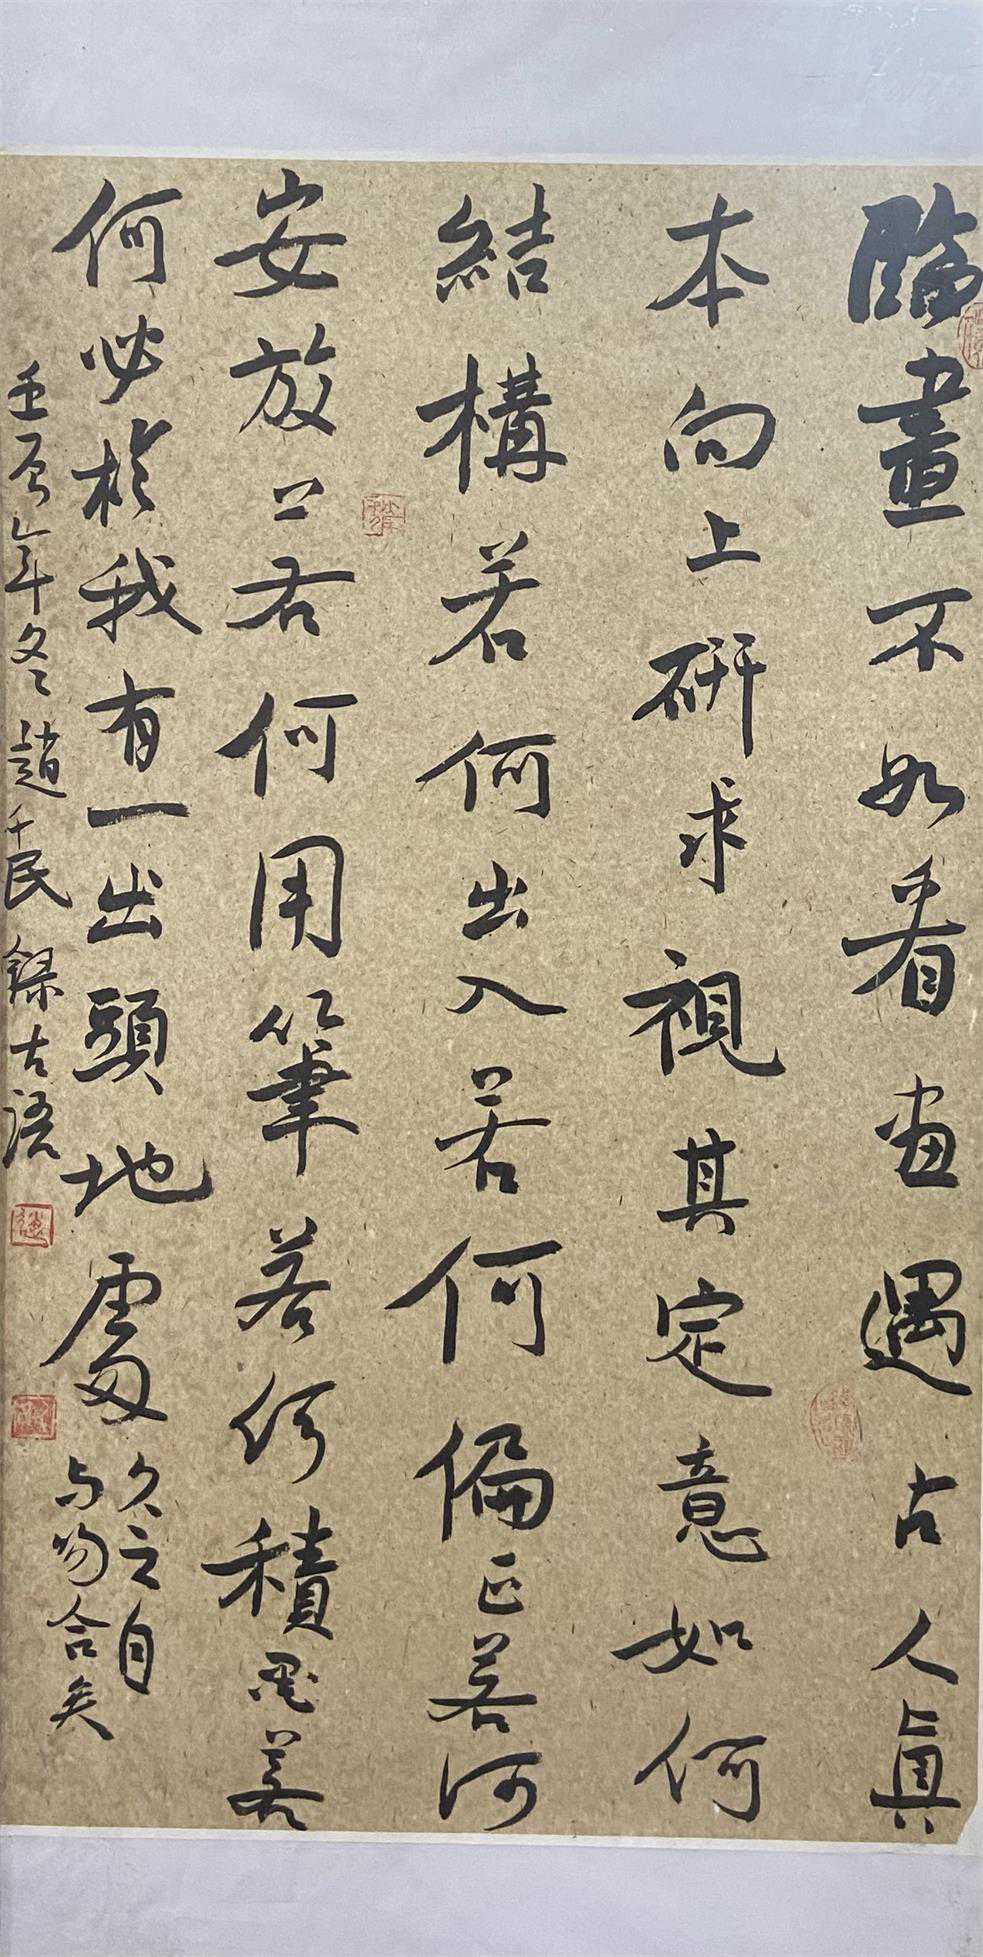 臨畫不如看画遇古人真
本向上研求視其定意如何
結構若何出入若何偏正若何
安放若何用筆若何積墨若
何必於我有一出頭地處
久之自
与吻合矣
壬辰年冬趙千民録古語